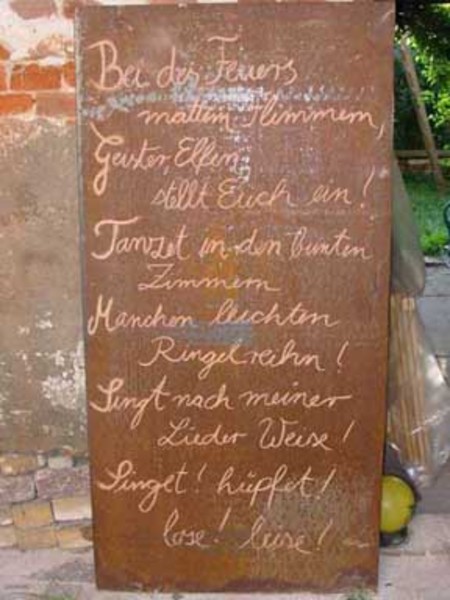 Bei des Feuers
mattem Flimmern,
Geister, Elfen
stellt Euch ein!
Tanzet in den bunten
Zimmern
Manchen leichten
Ringelreihn!
Singt nach meiner
Lieder Weise!
Singet! hüpfet!
lose! leise!